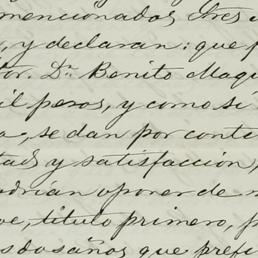 mencionados tres
, y declaran: que
or. Dr. Benito Maq
il pesos, y como si
a, se dan por conte
tad y satisfacción,
odrían oponer de
ve, título primero, p
s dos años que prefi